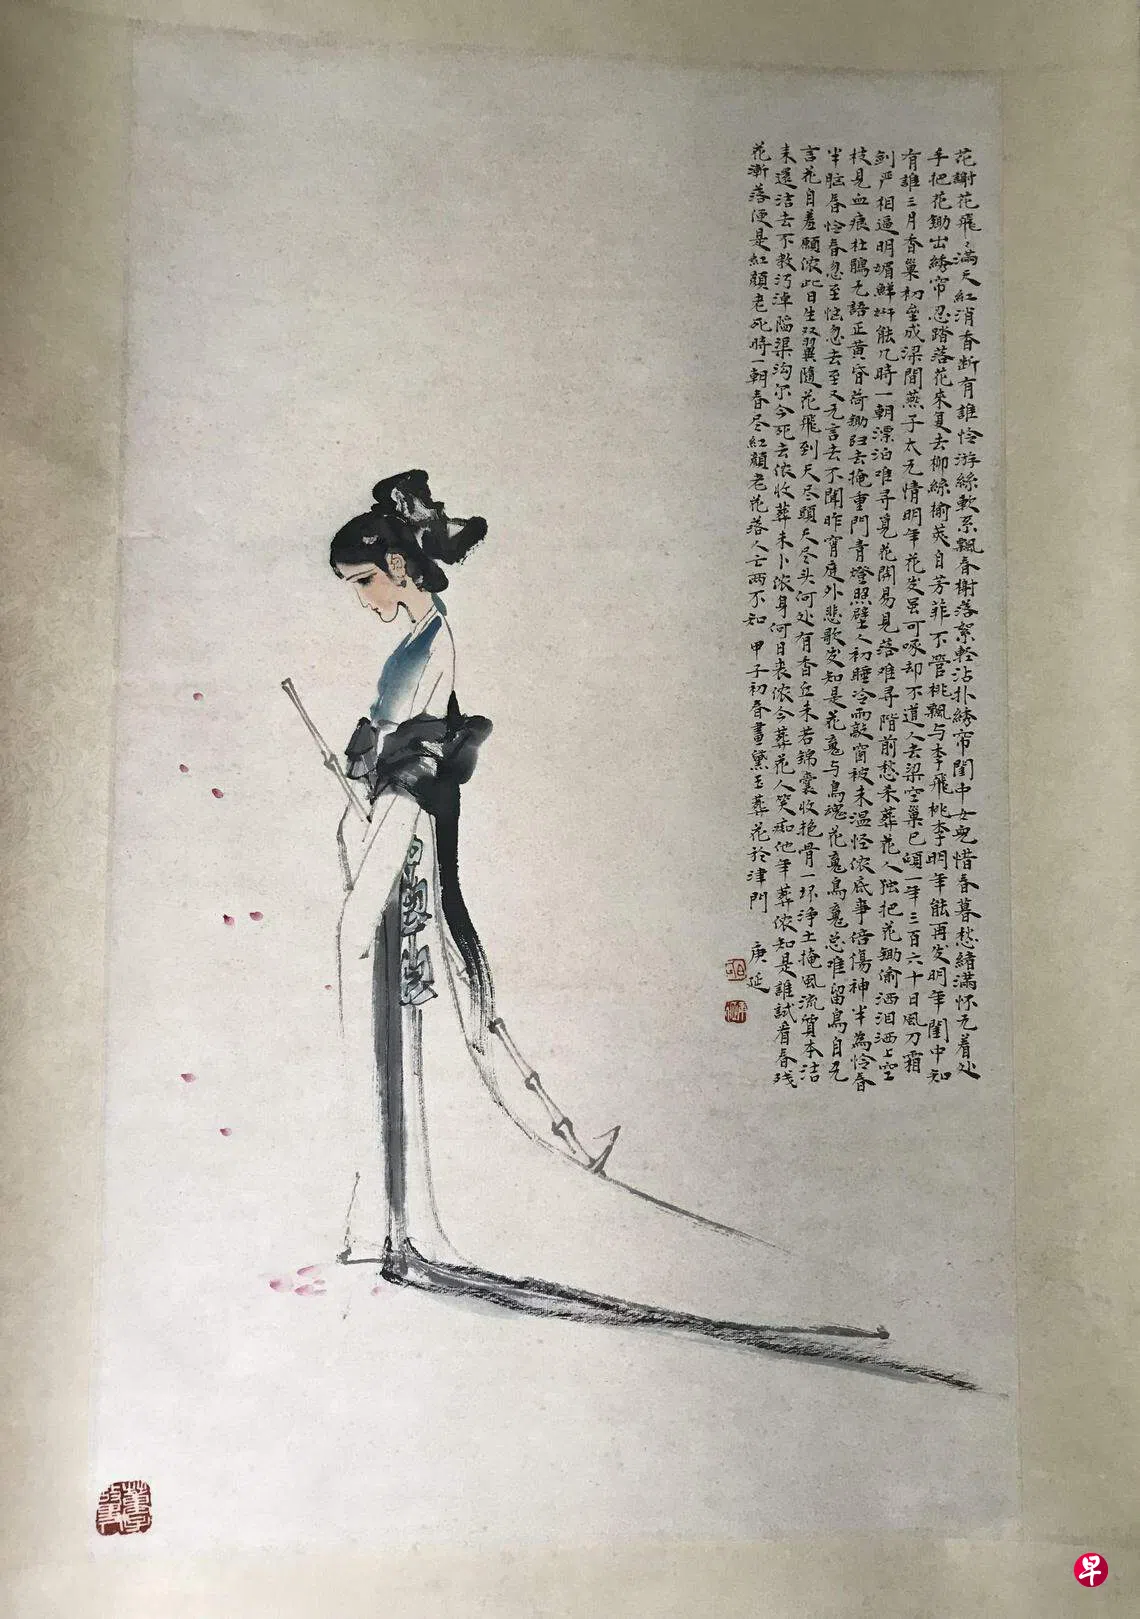 花謝花飛〻滿天紅消香断有誰怜游絲軟系飄春榭落絮軽沾扑綉帘閨中女兒惜春暮愁緒滿怀无着处
手把花鋤出綉帘忍踏落花來复去柳絲榆荚自芳菲不管桃飄与李飛桃李明年能再发明年閨中知
有誰三月香巢初垒成梁間燕子太无情明年花发虽可啄却不道人去梁空巢已頃一年三百六十日風刀霜
剑严相逼明媚鮮妍能几時一朝漂泊难寻覓花開易見落难寻階前愁杀葬花人独把花鋤偷洒泪洒上空
枝見血痕杜鵑无語正黄昏荷鋤归去掩重門青燈照壁人初睡冷雨敲窗被未温怪侬底事倍傷神半為怜春
半恼春怜春忽至恼忽去至又无言去不聞昨宵庭外悲歌发知是花魂与鳥魂花魂鳥魂总难留鳥自无
言花自羞願侬此日生双翼隨花飛到天尽頭天尽头何处有香丘未若锦囊收艳骨一坏淨土掩風流質本洁
来還洁去不教污淖陷渠沟尔今死去侬收葬未卜侬身何日丧侬今葬花人笑痴他年葬侬知是誰試看春残
花漸落便是紅顏老死時一朝春尽紅顏老花落人亡两不知 甲子初春畫黛玉葬花於津門 庚延
早